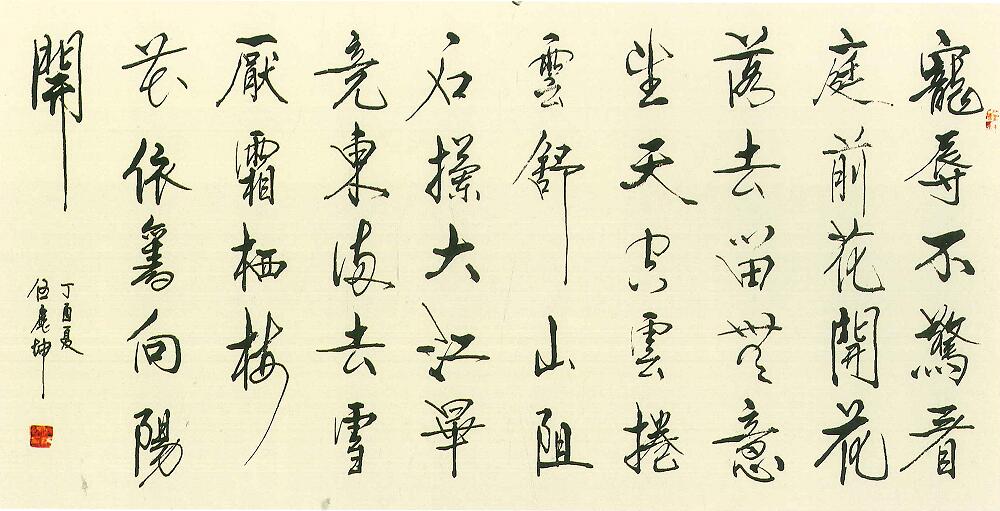 寵辱不驚看
庭前花開花
落去留無意
望天空雲捲
雲舒 山阻
石攔大江畢
竟東海去雪
厭霜栖梅
花依舊向陽
開
丁酉夏